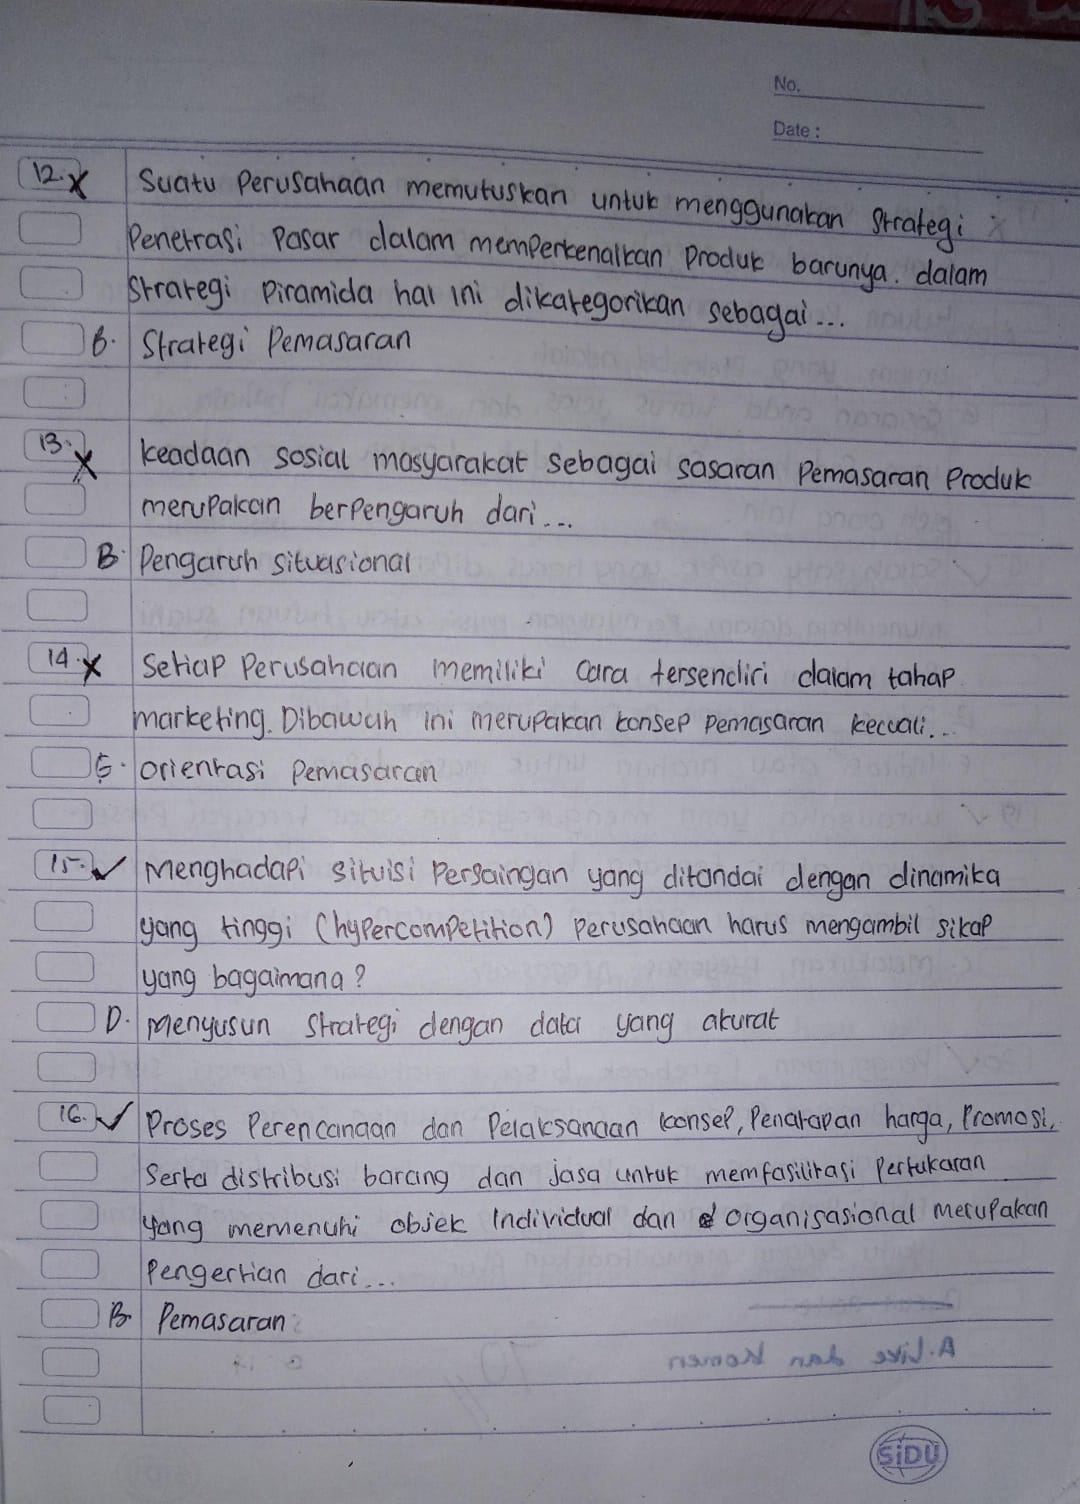 No.
Date :
12. x Suatu Perusahaan memutuskan untuk menggunakan Strategi
Penetrasi Pasar dalam memperkenalkan Produk barunya. dalam
Strategi Piramida hal ini dikategorikan sebagai...
B. Strategi Pemasaran
13. x keadaan sosial masyarakat sebagai sasaran Pemasaran Produk
merupakan berpengaruh dari...
B. Pengaruh situasional
14. x Setiap Perusahaan memiliki cara tersendiri dalam tahap
marketing. Dibawah ini merupakan konsep pemasaran kecuali...
E. orientasi pemasaran
15. ✓ Menghadapi situisi Persaingan yang ditandai dengan dinamika
yang tinggi (hypercompetition) perusahaan harus mengambil sikap
yang bagaimana?
D. Menyusun Strategi dengan data yang akurat
16. ✓ Proses Perencangan dan Pelaksanaan konsep, Penatapan harga, Promosi,
Serta distribusi barang dan jasa untuk memfasilitasi pertukaran
yang memenuhi objek Individual dan organisasional merupakan
Pengertian dari...
B. Pemasaran
A. Like dan Komen
SiDU